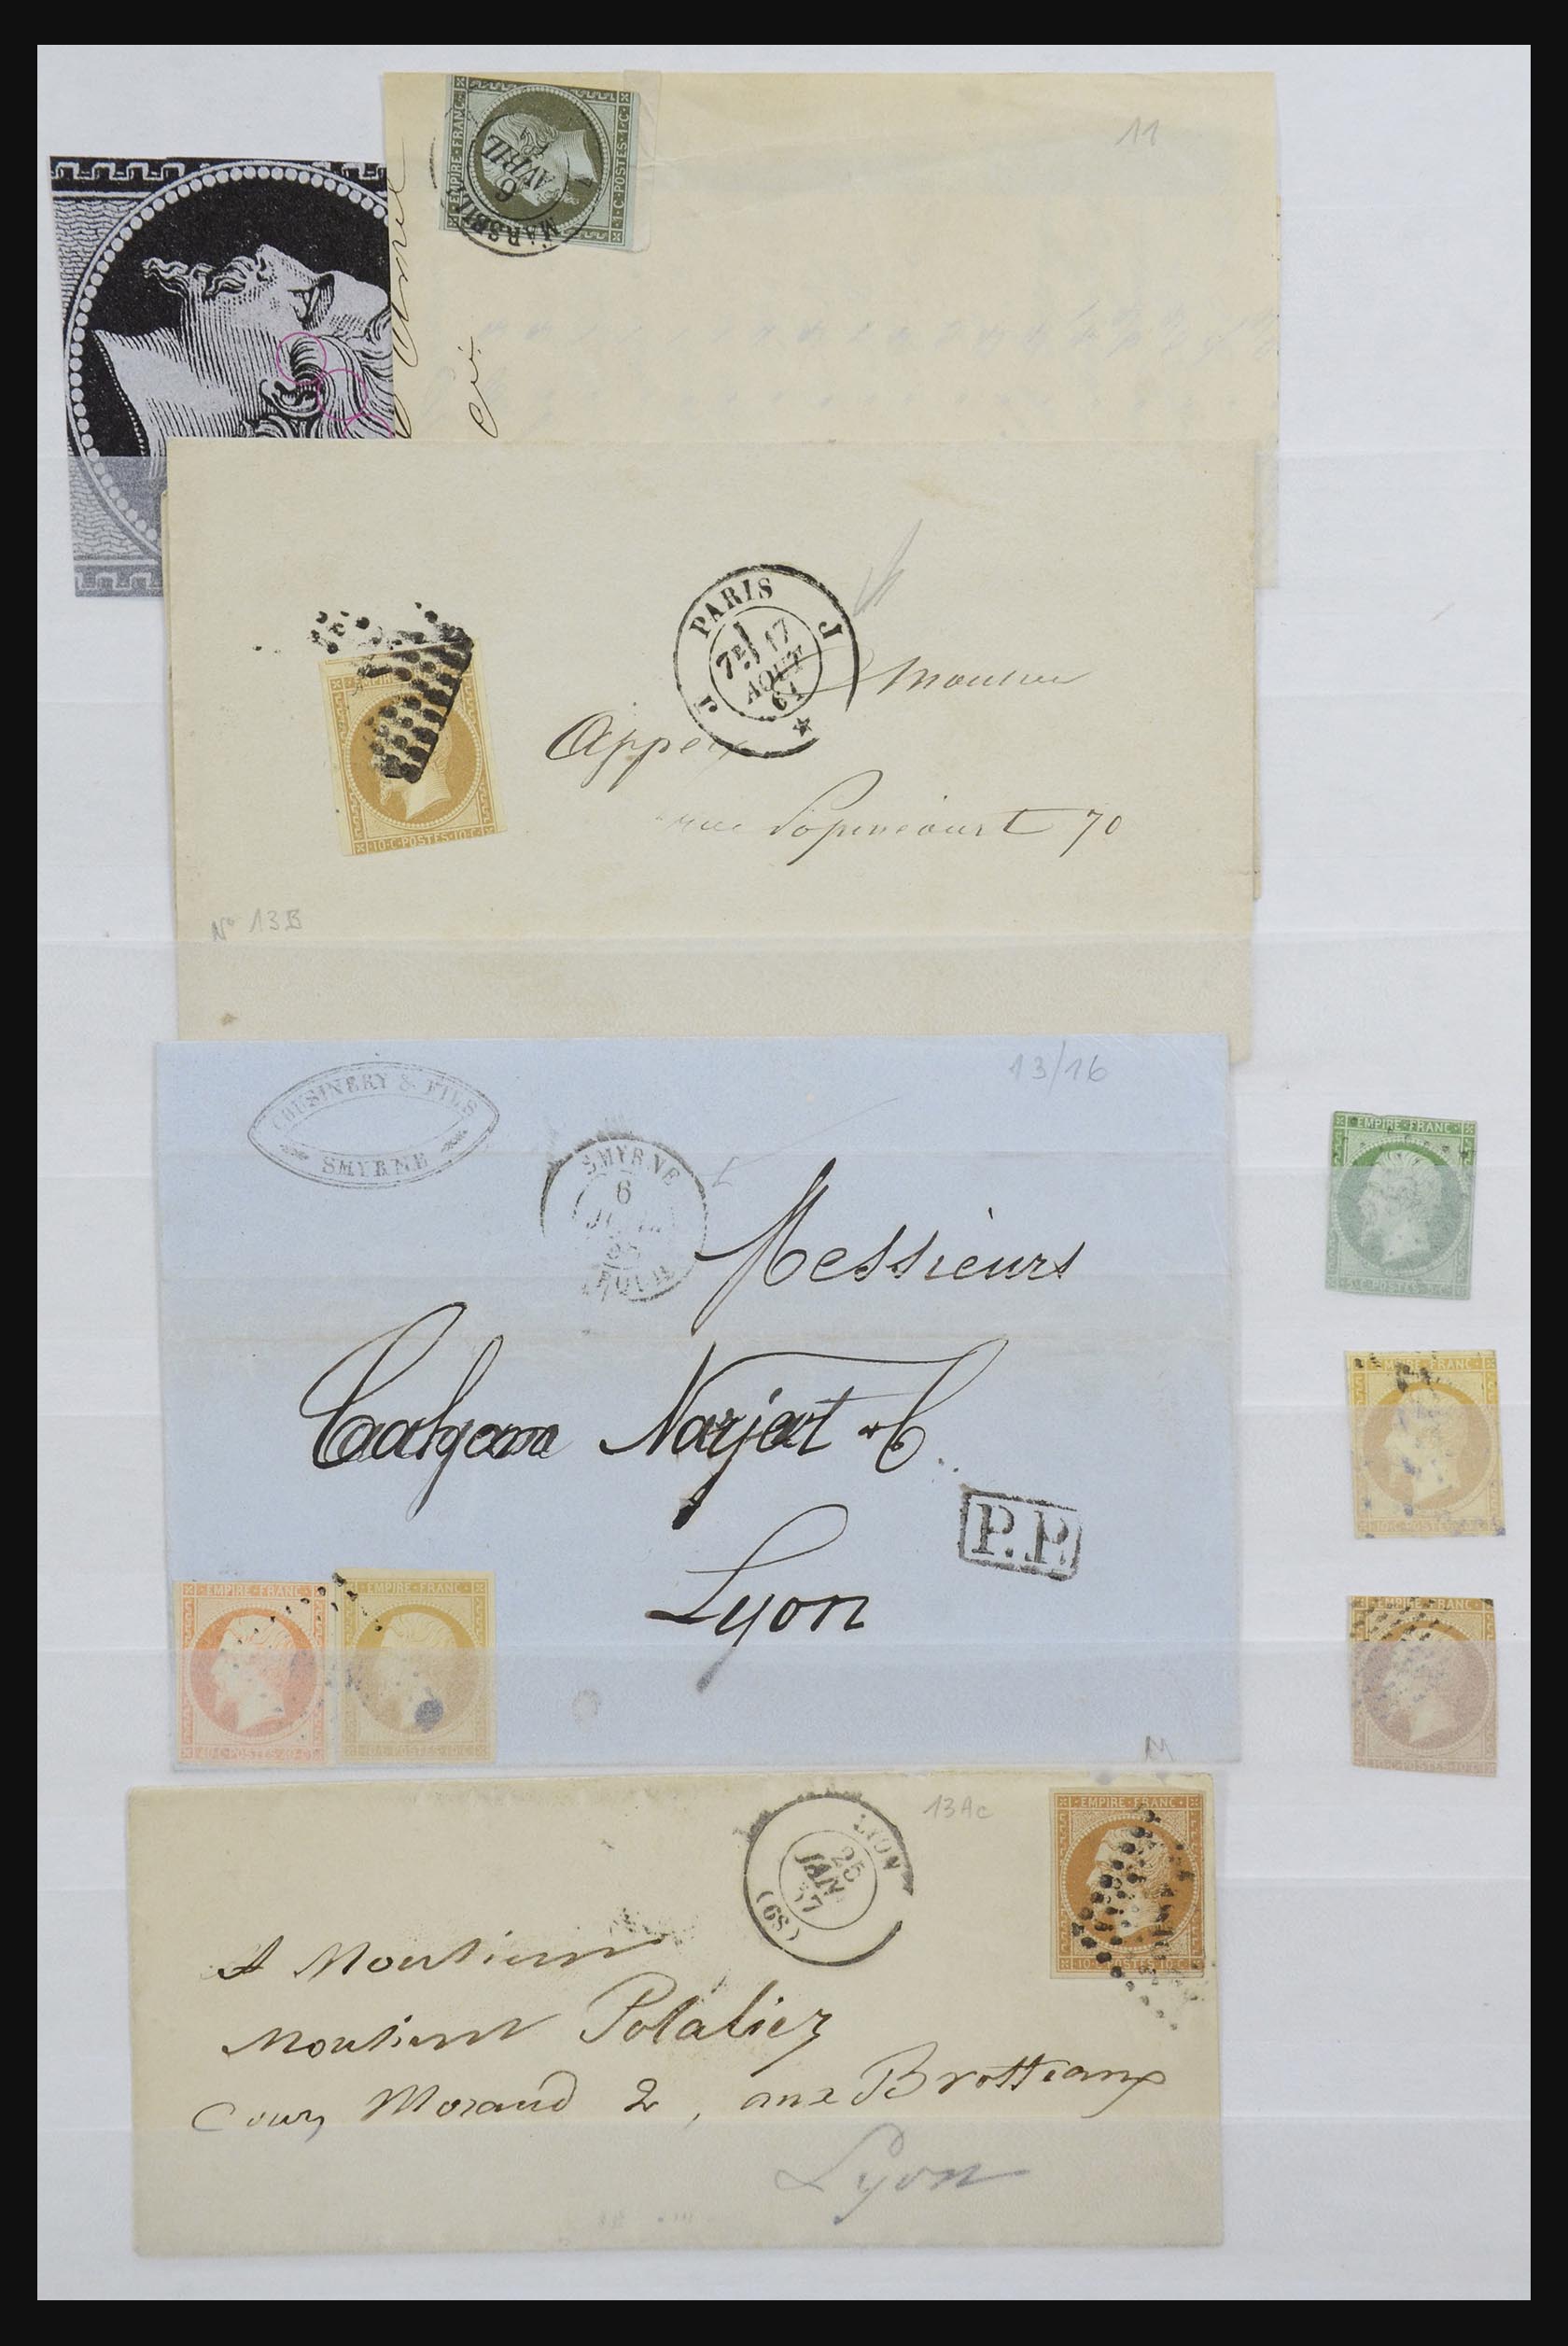 11
EMPIRE·FRANC
1·C·POSTES·1·C
MARSEIL
6
AVRIL
PARIS
J J
7E 17
AOUT
61
10·C·POSTES·10·C
rue Popincourt 70
No 13B
13/16
COUSINERY & FILS
SMYRNE
SMYRNE
6
Messieurs
Narjot & C
P.P.
Lyon
EMPIRE·FRANC
40·C·POSTES·40·C
EMPIRE·FRANC
10·C·POSTES·10·C
EMPIRE·FRANC
5·C·POSTES·5·C
EMPIRE·FRANC
10·C·POSTES·10·C
EMPIRE·FRANC
10·C·POSTES·10·C
13Ac
LYON
25
JANV
57
(68)
EMPIRE·FRANC
10·C·POSTES·10·C
A Monsieur
Monsieur Potalier
Cours Morand 2, aux Brotteaux
Lyon